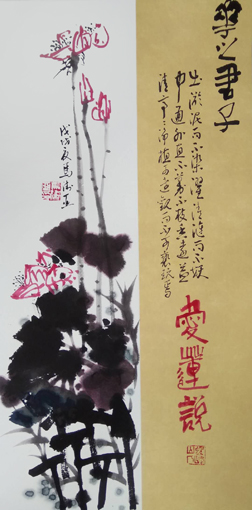 之君子
出淤泥而不染濯清漣而不妖
中通外直不蔓不枝香遠益
清亭亭淨植可遠觀而不可褻玩焉
愛蓮說
戊戌夏